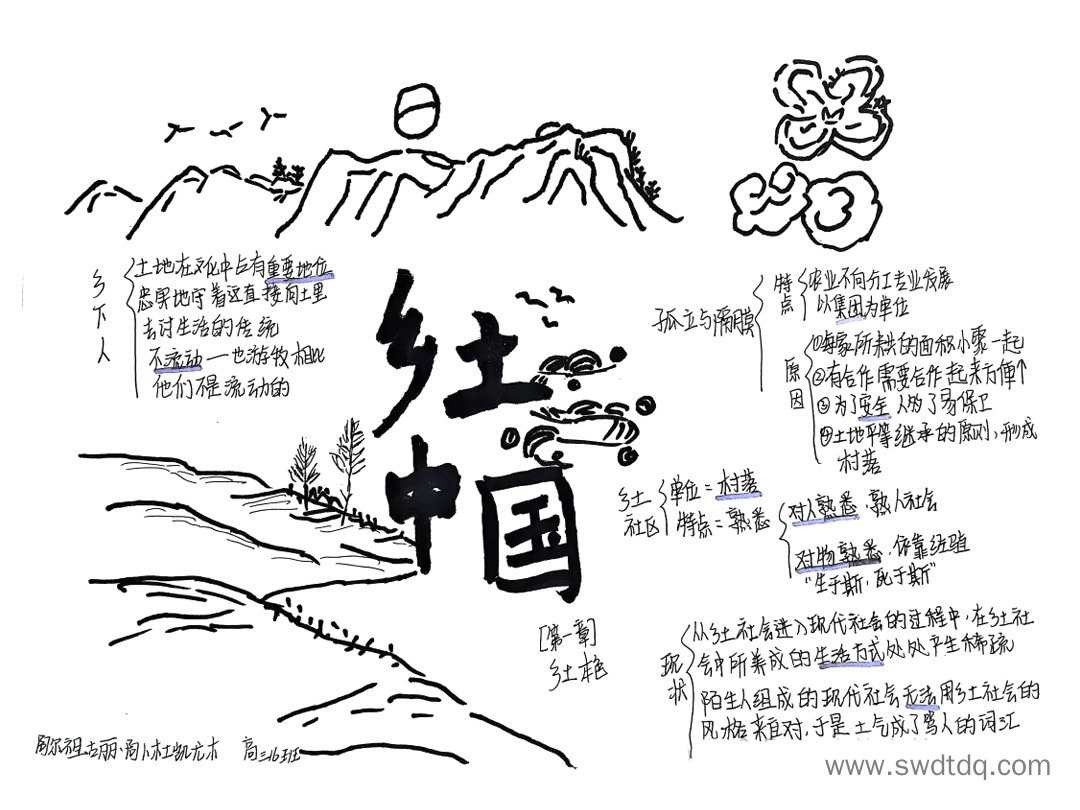 乡下人
土地在文化中占有重要地位
忠实地守着远直接向土里
去讨生活的传统
不流动一也游牧相比
他们不是流动的
乡土
中国
[第一章]
乡土本色
孤立与隔膜
特点
农业不向分工专业发展
以集团为单位
原因
①每家所耕的面积小聚一起
②有合作需要合作起来方便↑
③为了安全 人多了易保卫
④土地平等继承的原则,形成
村落
乡土
社区
单位=村落
特点=熟悉
对人熟悉,熟人社会
对物熟悉,依靠经验
"生于斯,死于斯"
现状
从乡土社会进入现代社会的过程中,在乡土社
会中所养成的生活方式处处产生稀疏
陌生人组成的现代社会无法用乡土社会的
风格来自对,于是土气成了骂人的词汇
高三16班
www.swdtdq.com